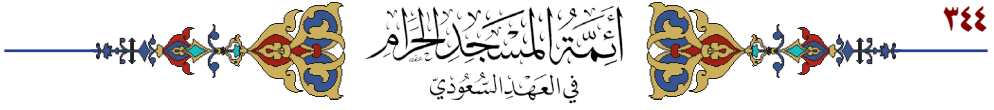 ٣٤٤
أَئِمَّةُ المَسْجِدِ الحَرَامِ
فِي العَهْدِ السُّعُودِيّ